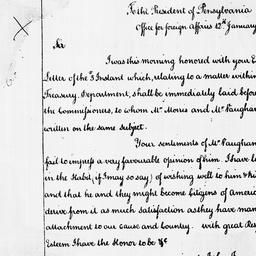 To the President of Pennsylvania
Office for foreign affairs 12th January
Sir
I was this morning honored with your
Letter of the 3 Instant which, relating to a matter within
Treasury Department, shall be immediately laid before
the Commissioners, to whom Mr Morris and Mr Vaughan
written on the same subject.
Your sentiments of Mr Vaughan
fail to impress a very favourable opinion of him. I have
in the Habit, (if I may so say) of wishing well to him
and that he and they might become Citizens of America
derive from it as much Satisfaction as they have
attachment to our cause and Country. with great
Esteem I have the Honor to be &c